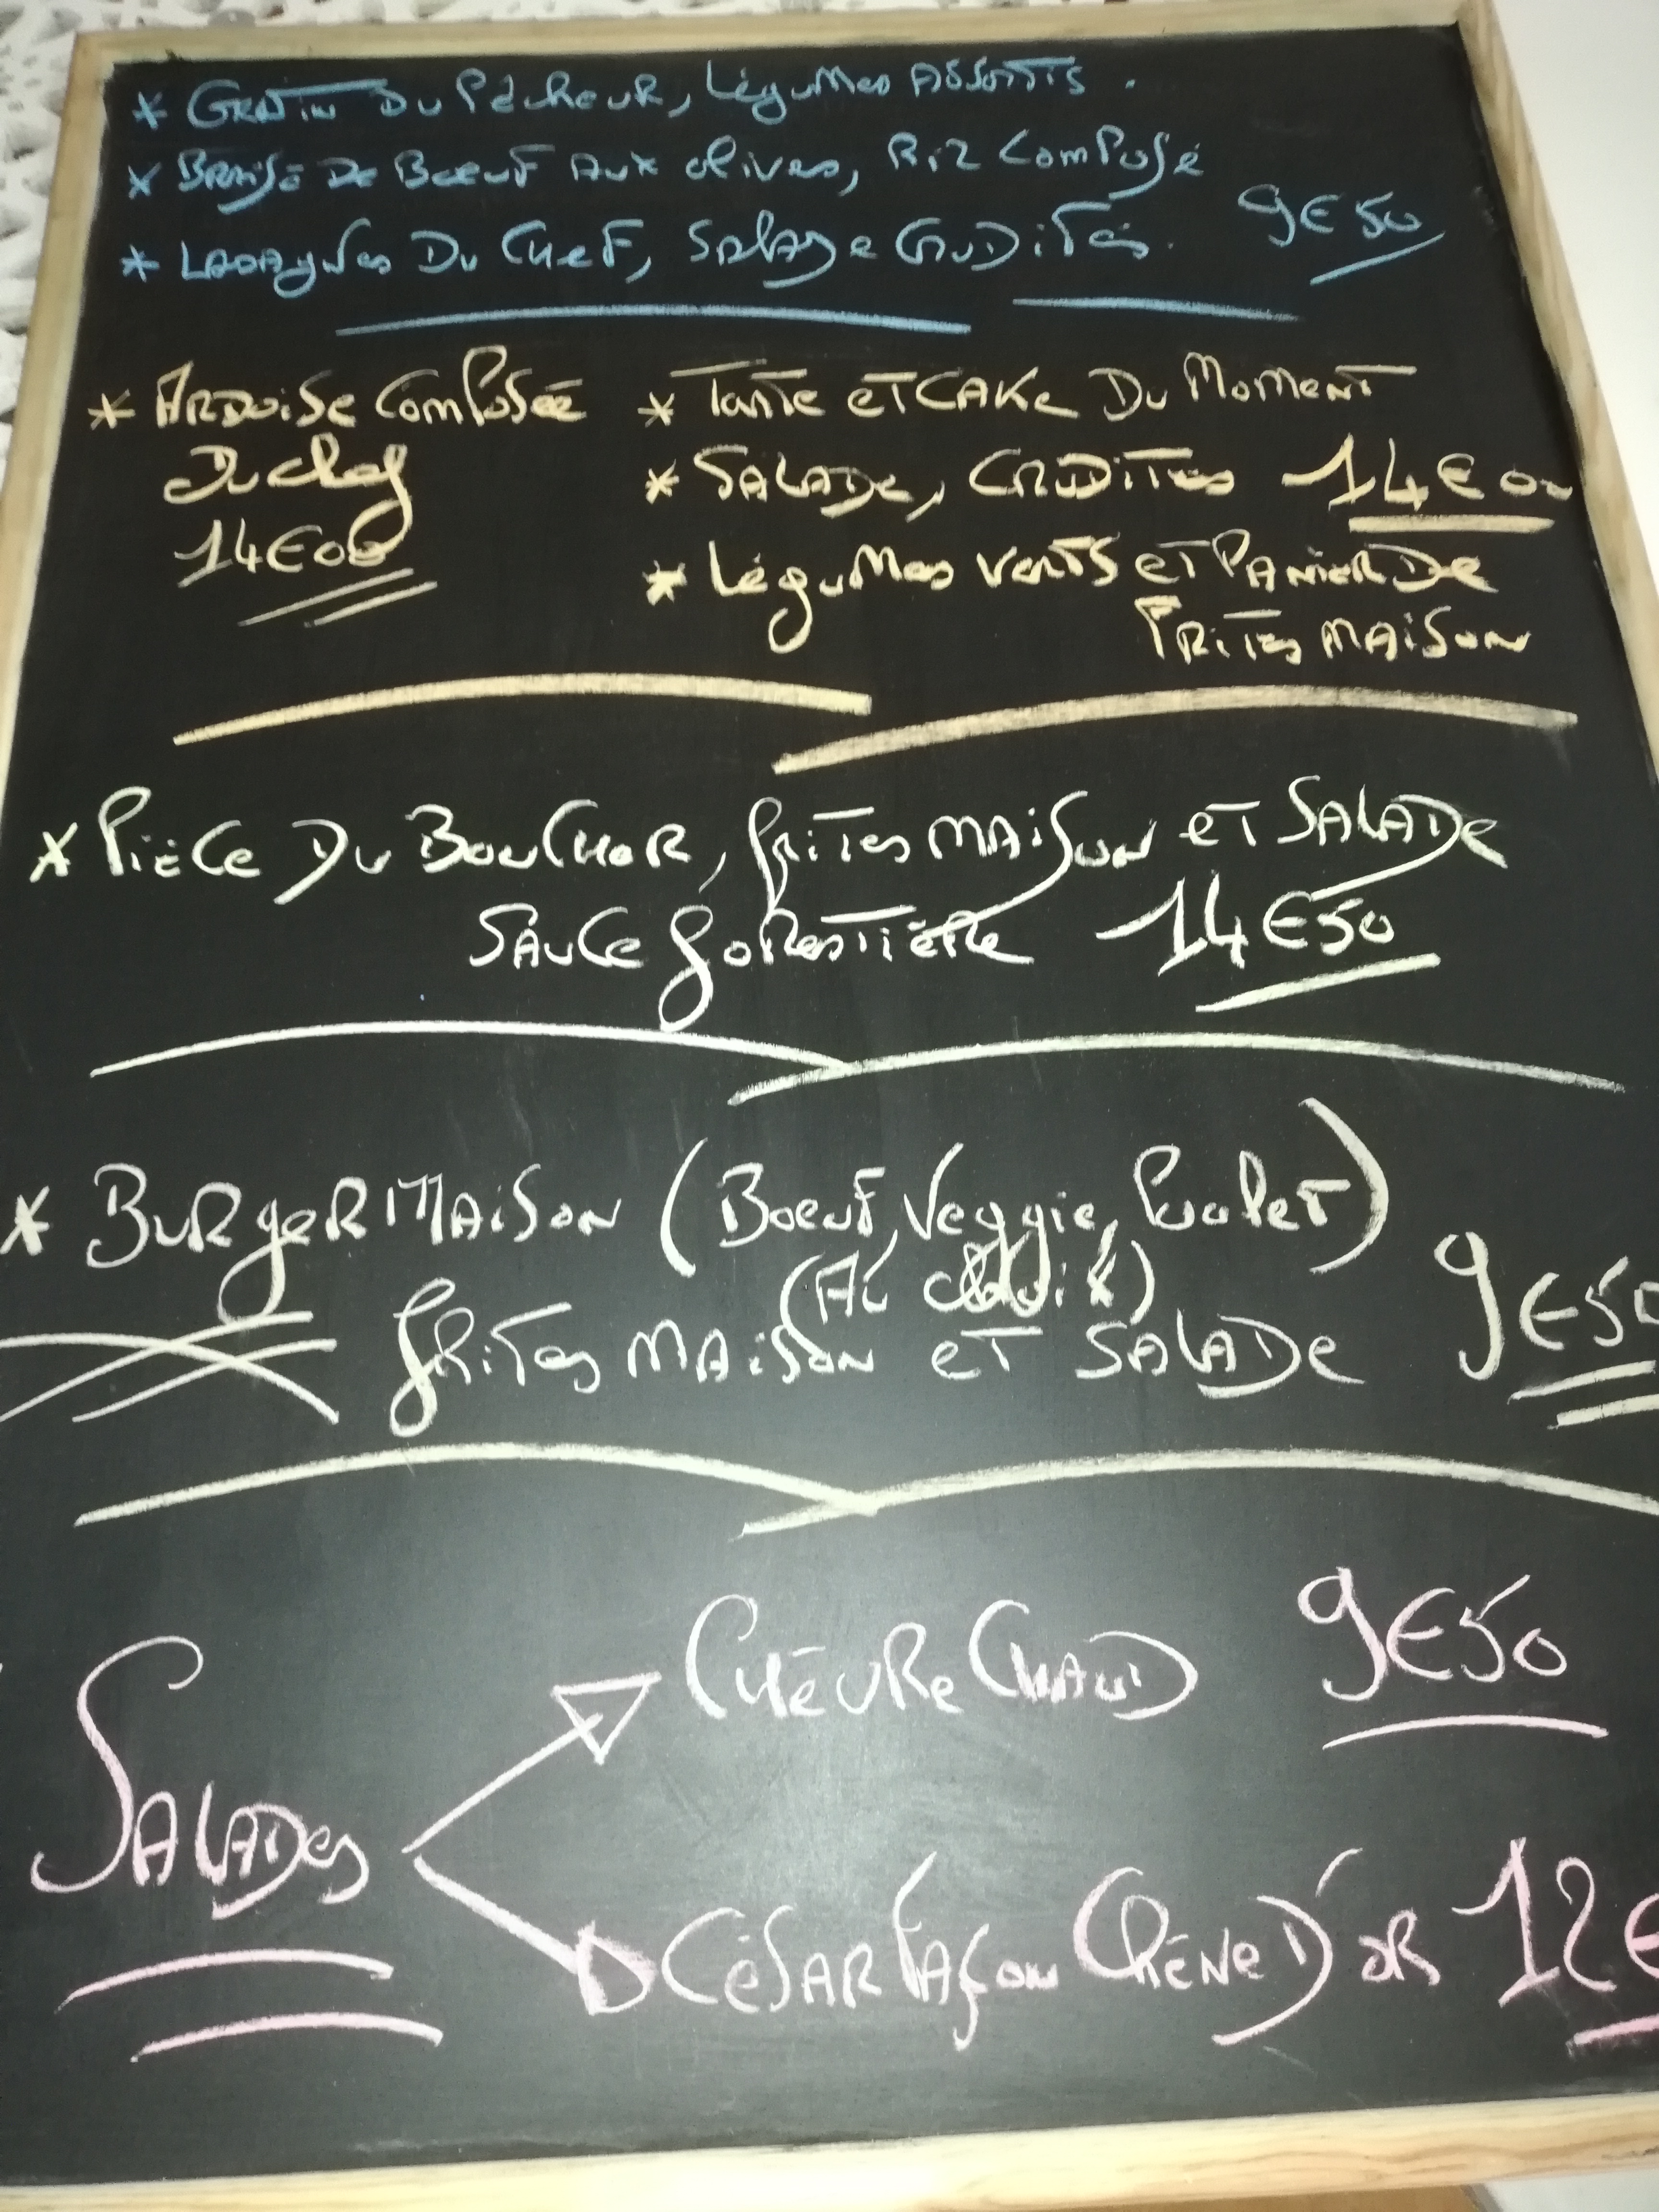 * Gratin Du Pêcheur, Légumes Assortis.
* Braisé De Boeuf Aux olives, Riz Composé
* Lasagnes Du Chef, Salade Crudités. 9€50
* Ardoise Composée
Du chef
14€00
* Tarte et Cake Du Moment
* Salade, Crudités 14€00
* Légumes verts et Panier De
Frites Maison
* Pièce Du Boucher, frites maison et Salade
Sauce forestière 14€50
* Burger Maison (Boeuf, Veggie, Poulet)
(Au choix)
frites maison et Salade 9€50
Salades
Chèvre Chaud 9€50
César Façon Chêne D'or 12€